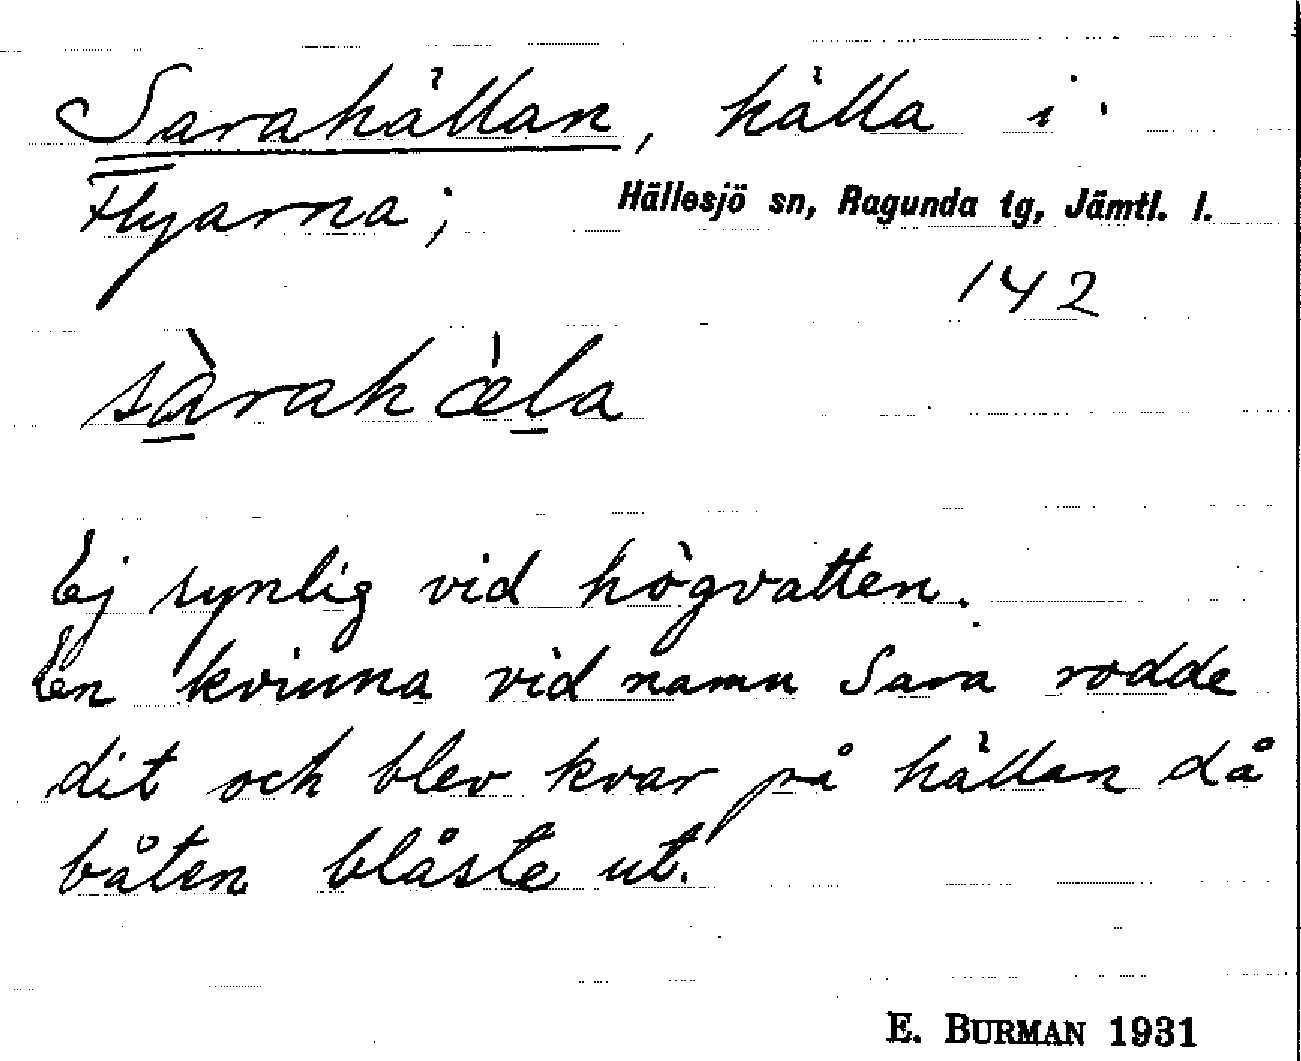 Sarahällan, hälla i
Flyarna; Hällesjö sn, Ragunda tg, Jämtl. l.
142
sàrahæ̀la
Ej synlig vid högvatten.
En kvinna vid namn Sara rodde
dit och blev kvar på hällan då
båten blåste ut.
E. BURMAN 1931